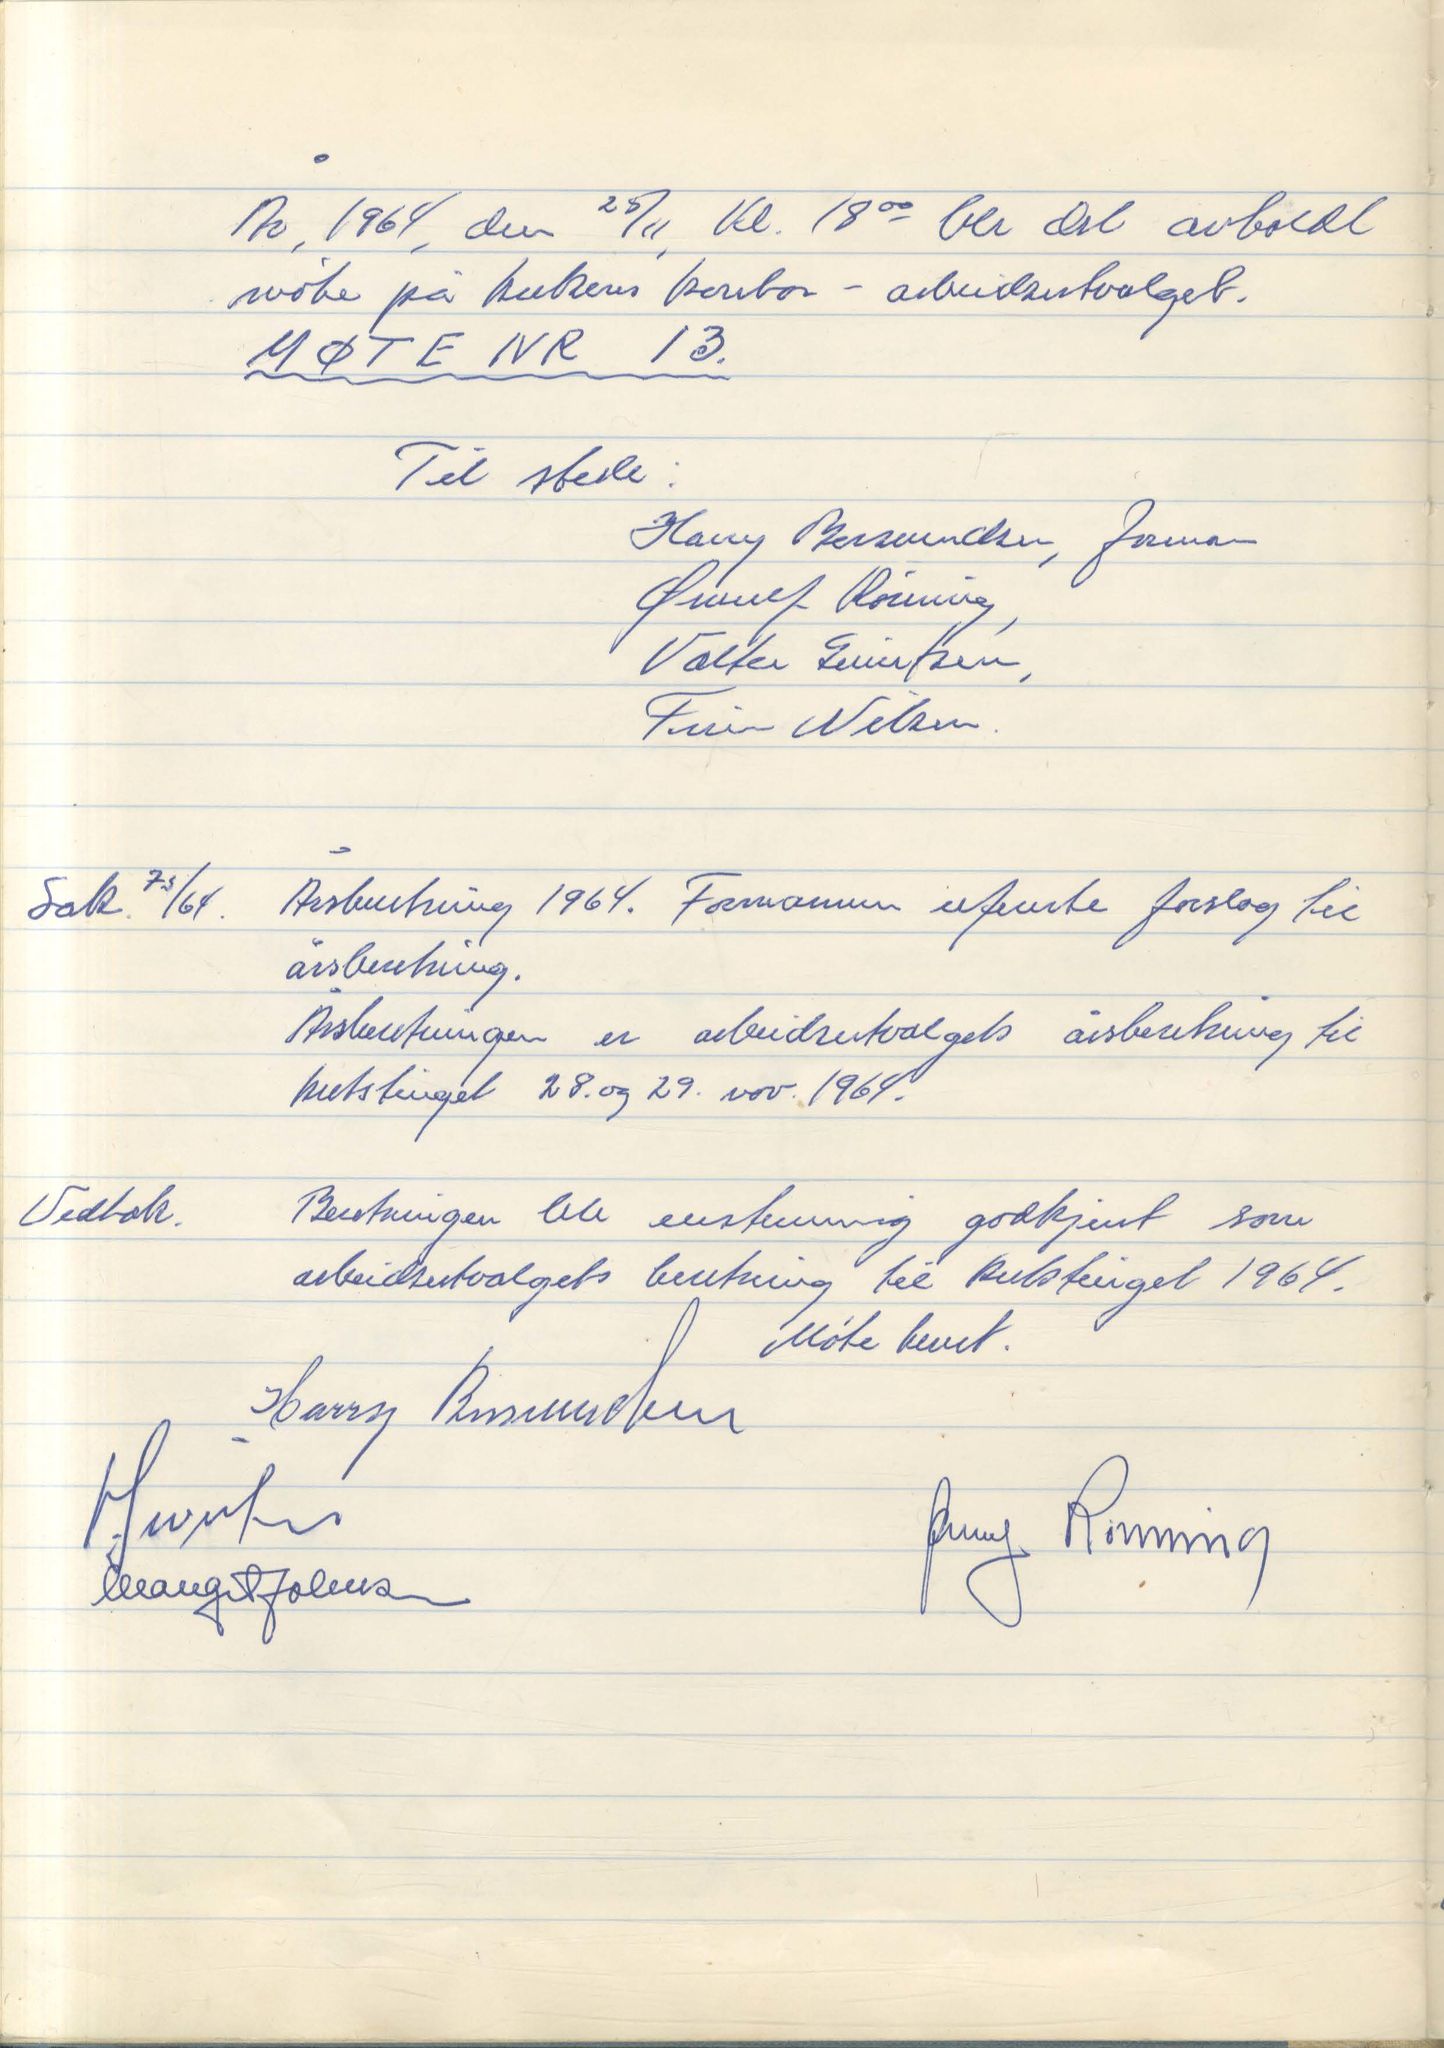 År, 1964, den 25/11, kl. 18 00 ble det avholdt
møte på kretsens kontor – arbeidsutvalget.
MØTE NR 13.
Til stede:
Harry Rasmundsen, formann
Ørnulf Rönning,
Valter Gerirtsen,
Finn Nilsen.
Sak. 73/64. Årsberetning 1964. Formannen refererte forslag til
årsberetning.
Årsberetningen er arbeidsutvalgets årsberetning til
kretstinget 28. og 29. nov. 1964.
Vedtak. Beretningen ble enstemmig godkjent som
arbeidsutvalgets beretning til kretstinget 1964.
Møte hevet.
Harry Rasmundsen
Ørnulf Rönning
Margit Johnsen